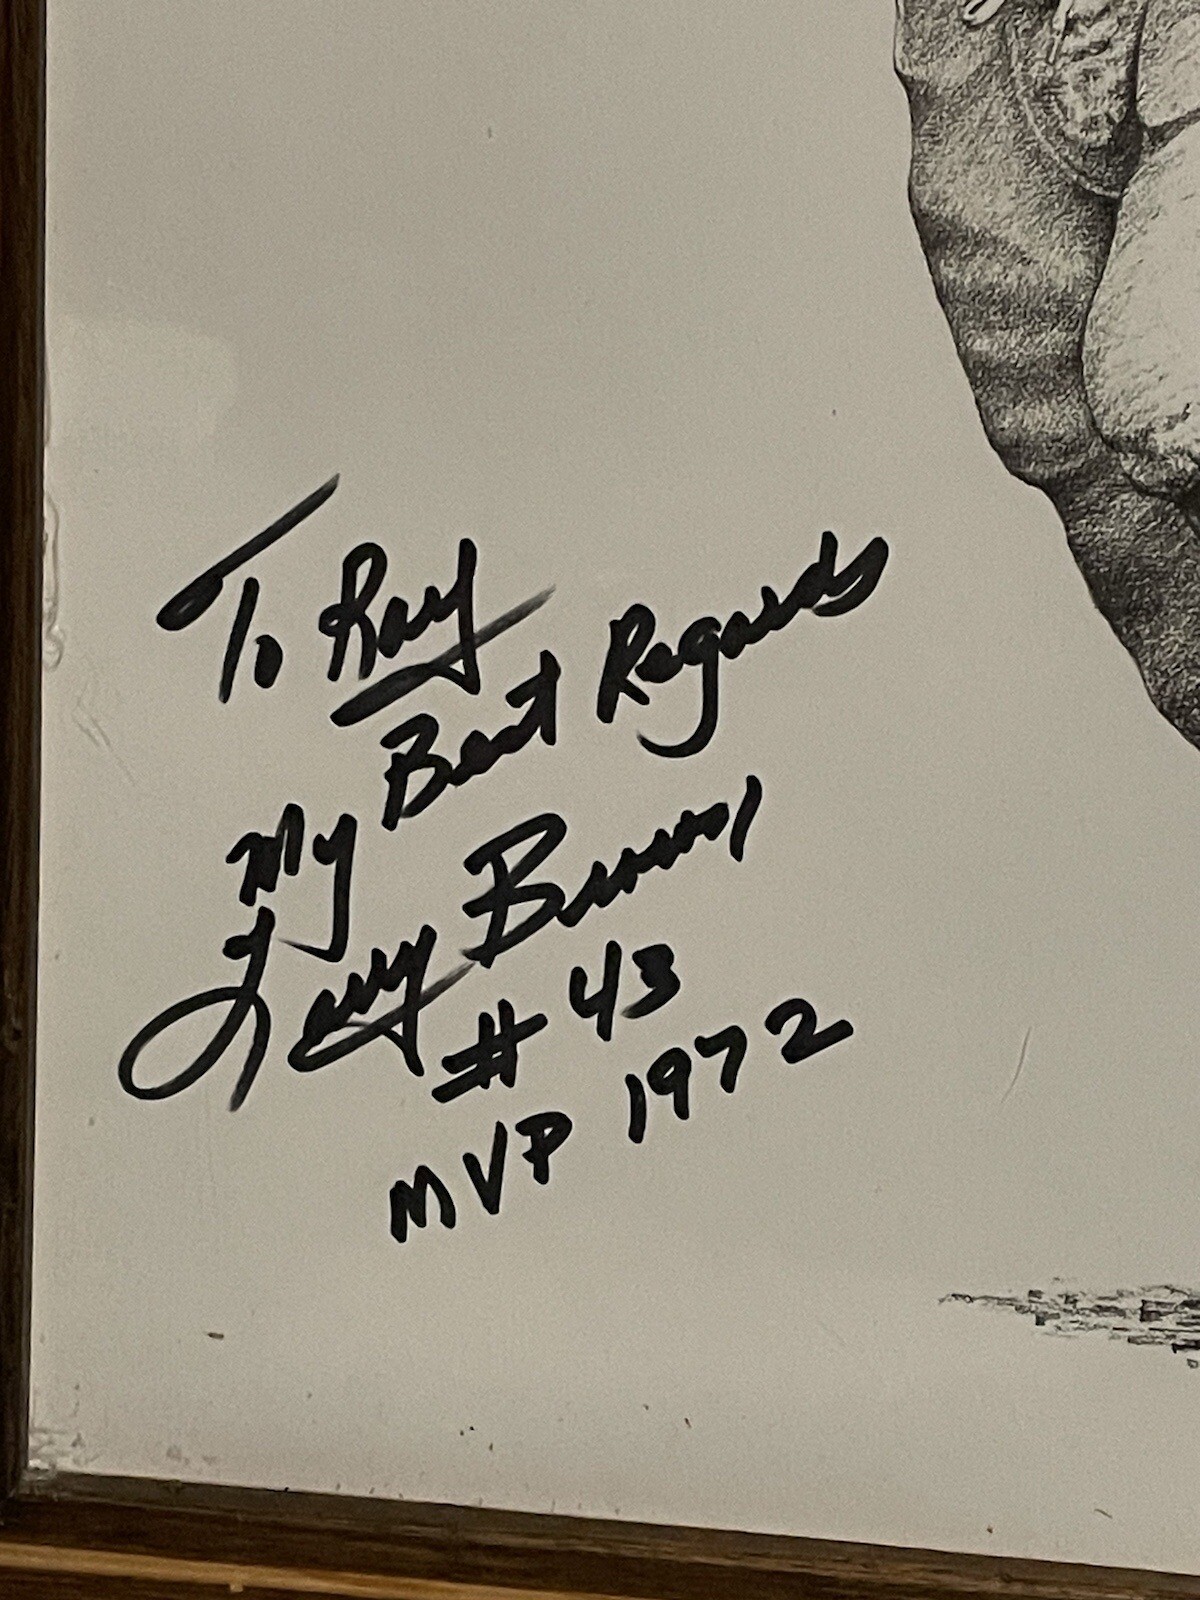 To Ray
My Best Regards
Larry Brown
# 43
MVP 1972